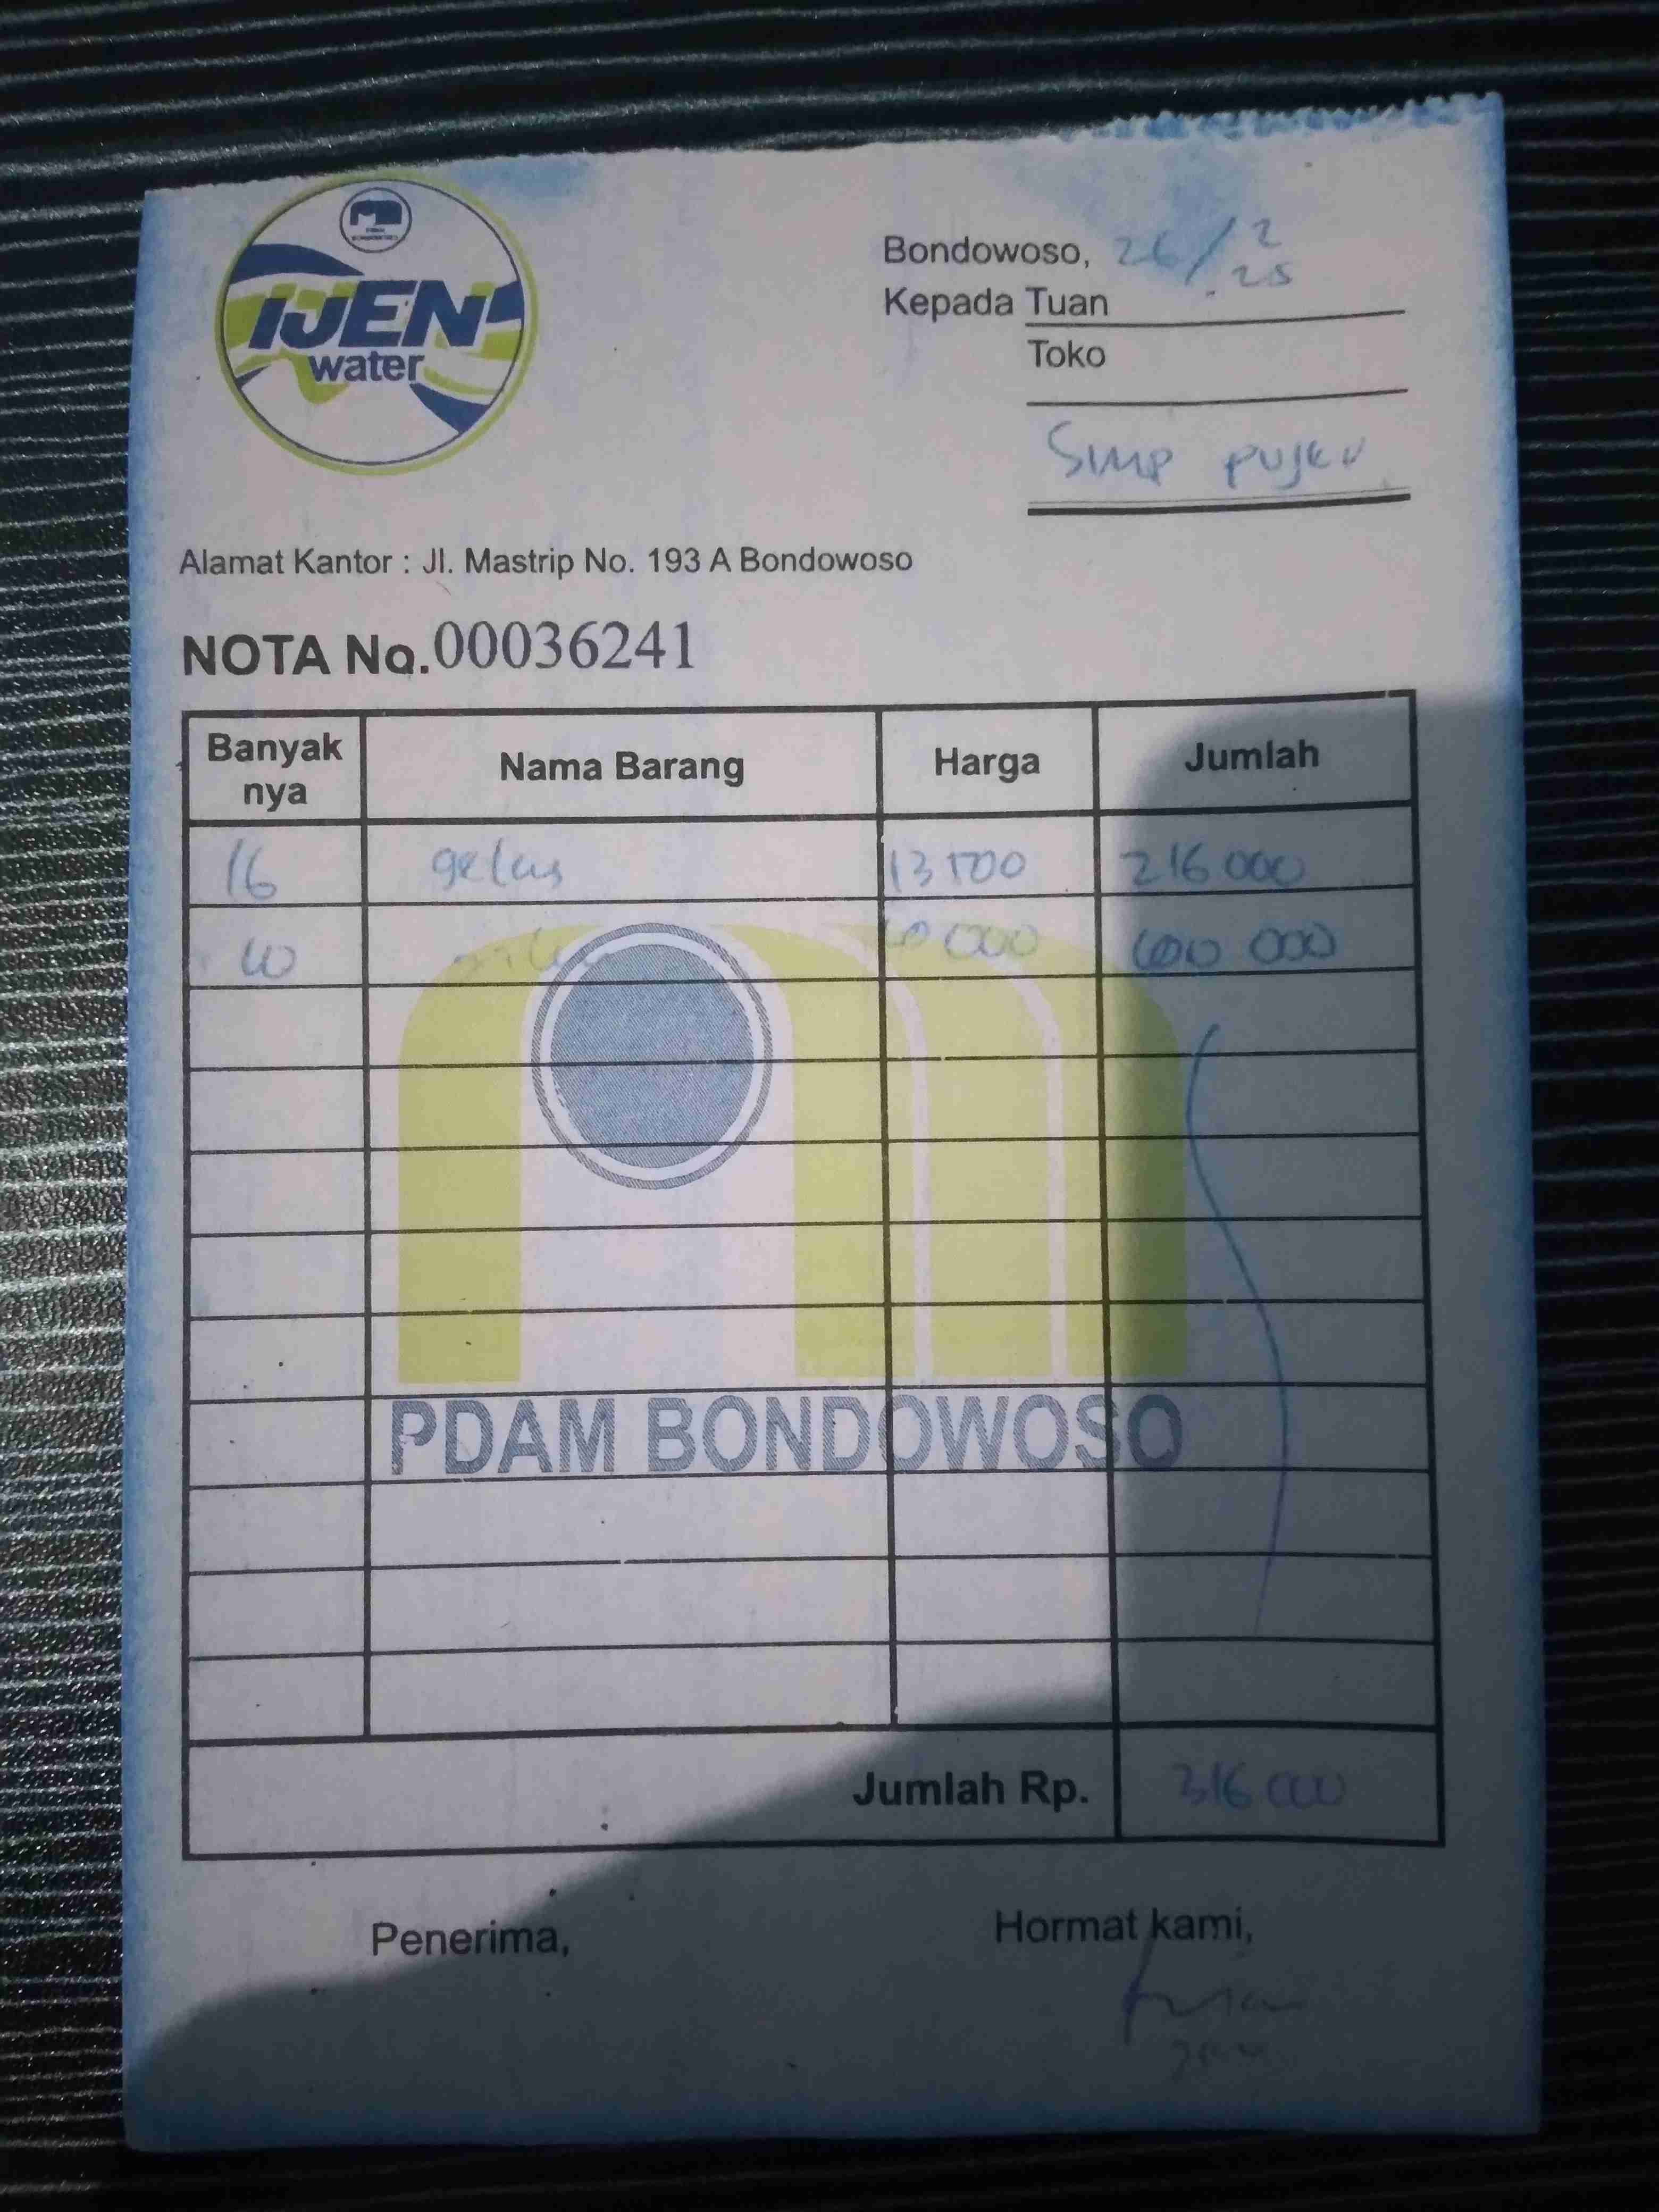 IJEN
water
Bondowoso, 26/2
25
Kepada Tuan
Toko
Simp pujer
Alamat Kantor : Jl. Mastrip No. 193 A Bondowoso
NOTA No. 00036241
Banyak nya Nama Barang Harga Jumlah
16 gelas 13500 216 000
10 10 000 100 000
PDAM BONDOWOSO
Jumlah Rp. 316 000
Penerima, Hormat kami,